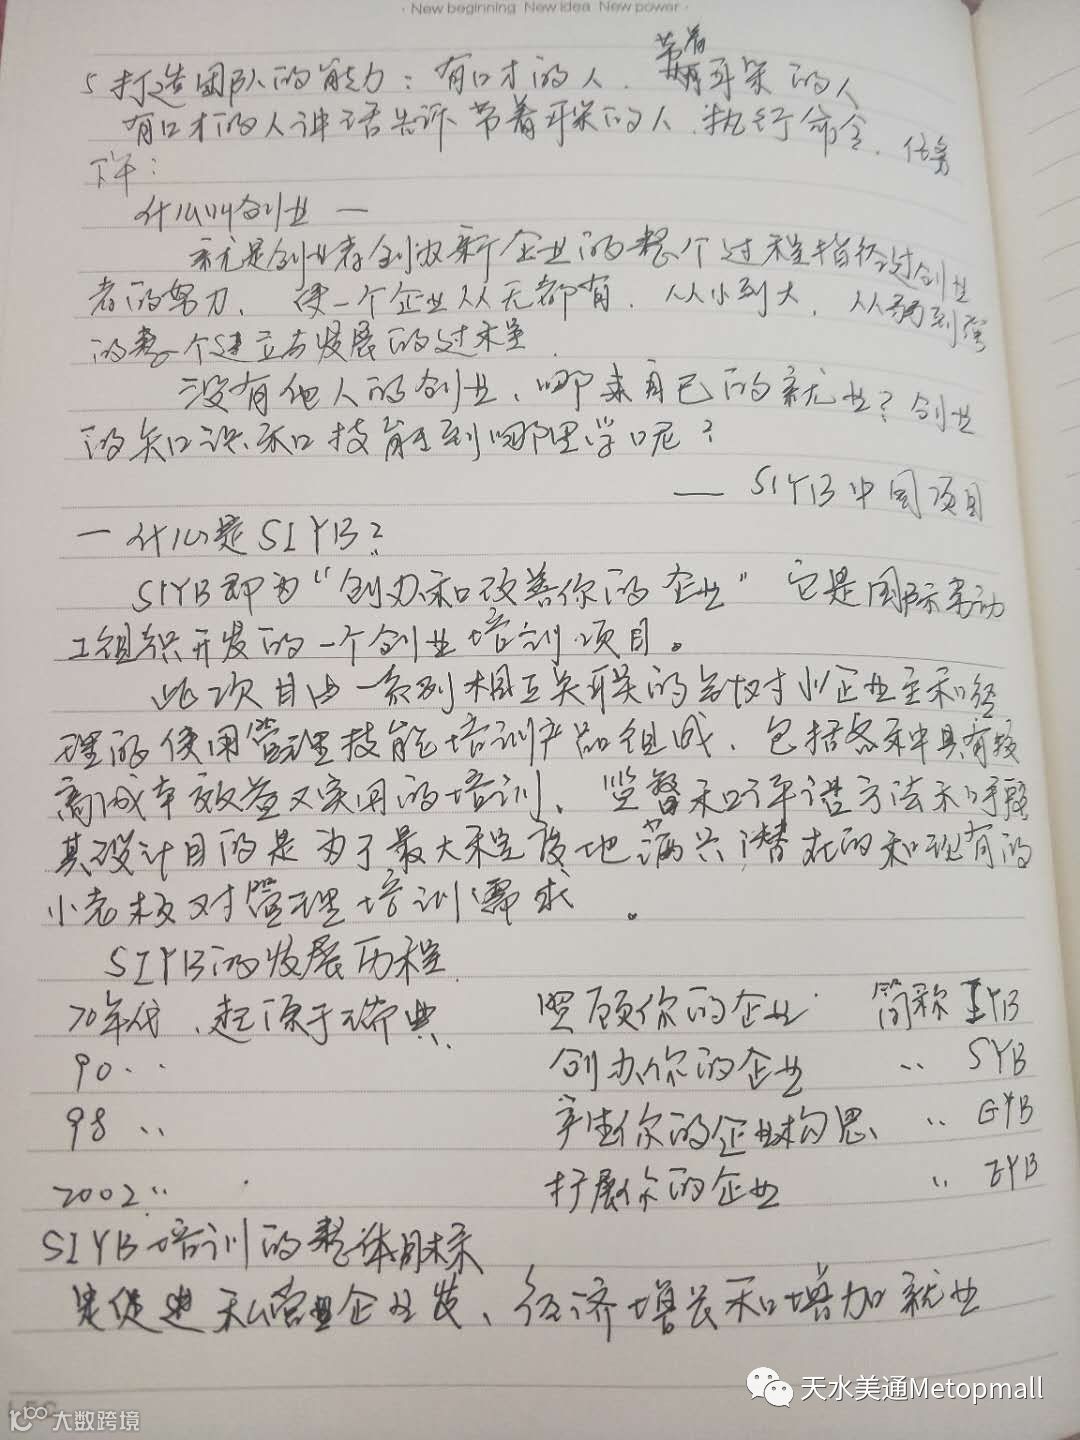 · New beginning New idea New power ·
5 打造团队的能力：有口才的人． 带着耳朵的人
有口才的人讲话告诉带着耳朵的人．执行命令．任务
下午：
什么叫创业 —
就是创业者创办新企业的整个过程指经过创业
者的努力． 使一个企业从无都有．从小到大． 从弱到强
的整个建立与发展的过程．
没有他人的创业．哪来自己的就业？创业
的知识和技能到哪里学呢？
— SIYB中国项目
一 什么是SIYB？
SIYB即为“创办和改善你的企业” 它是国际劳动
工组织开发的一个创业培训项目。
此次目由一系列相互关联的 对小企业主和经
理的使用管理技能培训产品组成．包括各种具有较
高成本效益又实用的培训、监督和评 方法和手段
其设计目的是为了最大程度地满 潜在的和现有的
小老板对管理培训需求 。
SIYB的发展历程
70年代．起源于瑞典． 照顾你的企业 简称 IYB
90 ‥ 创办你的企业 ‥ SYB
98 ‥ 产生你的企业构思、 ‥ GYB
2002 ‥ 扩展你的企业 ‥ EYB
SIYB培训的整体目标
是促进私营企业发、经济增长和增加就业
天水美通Metopmall
大数跨境